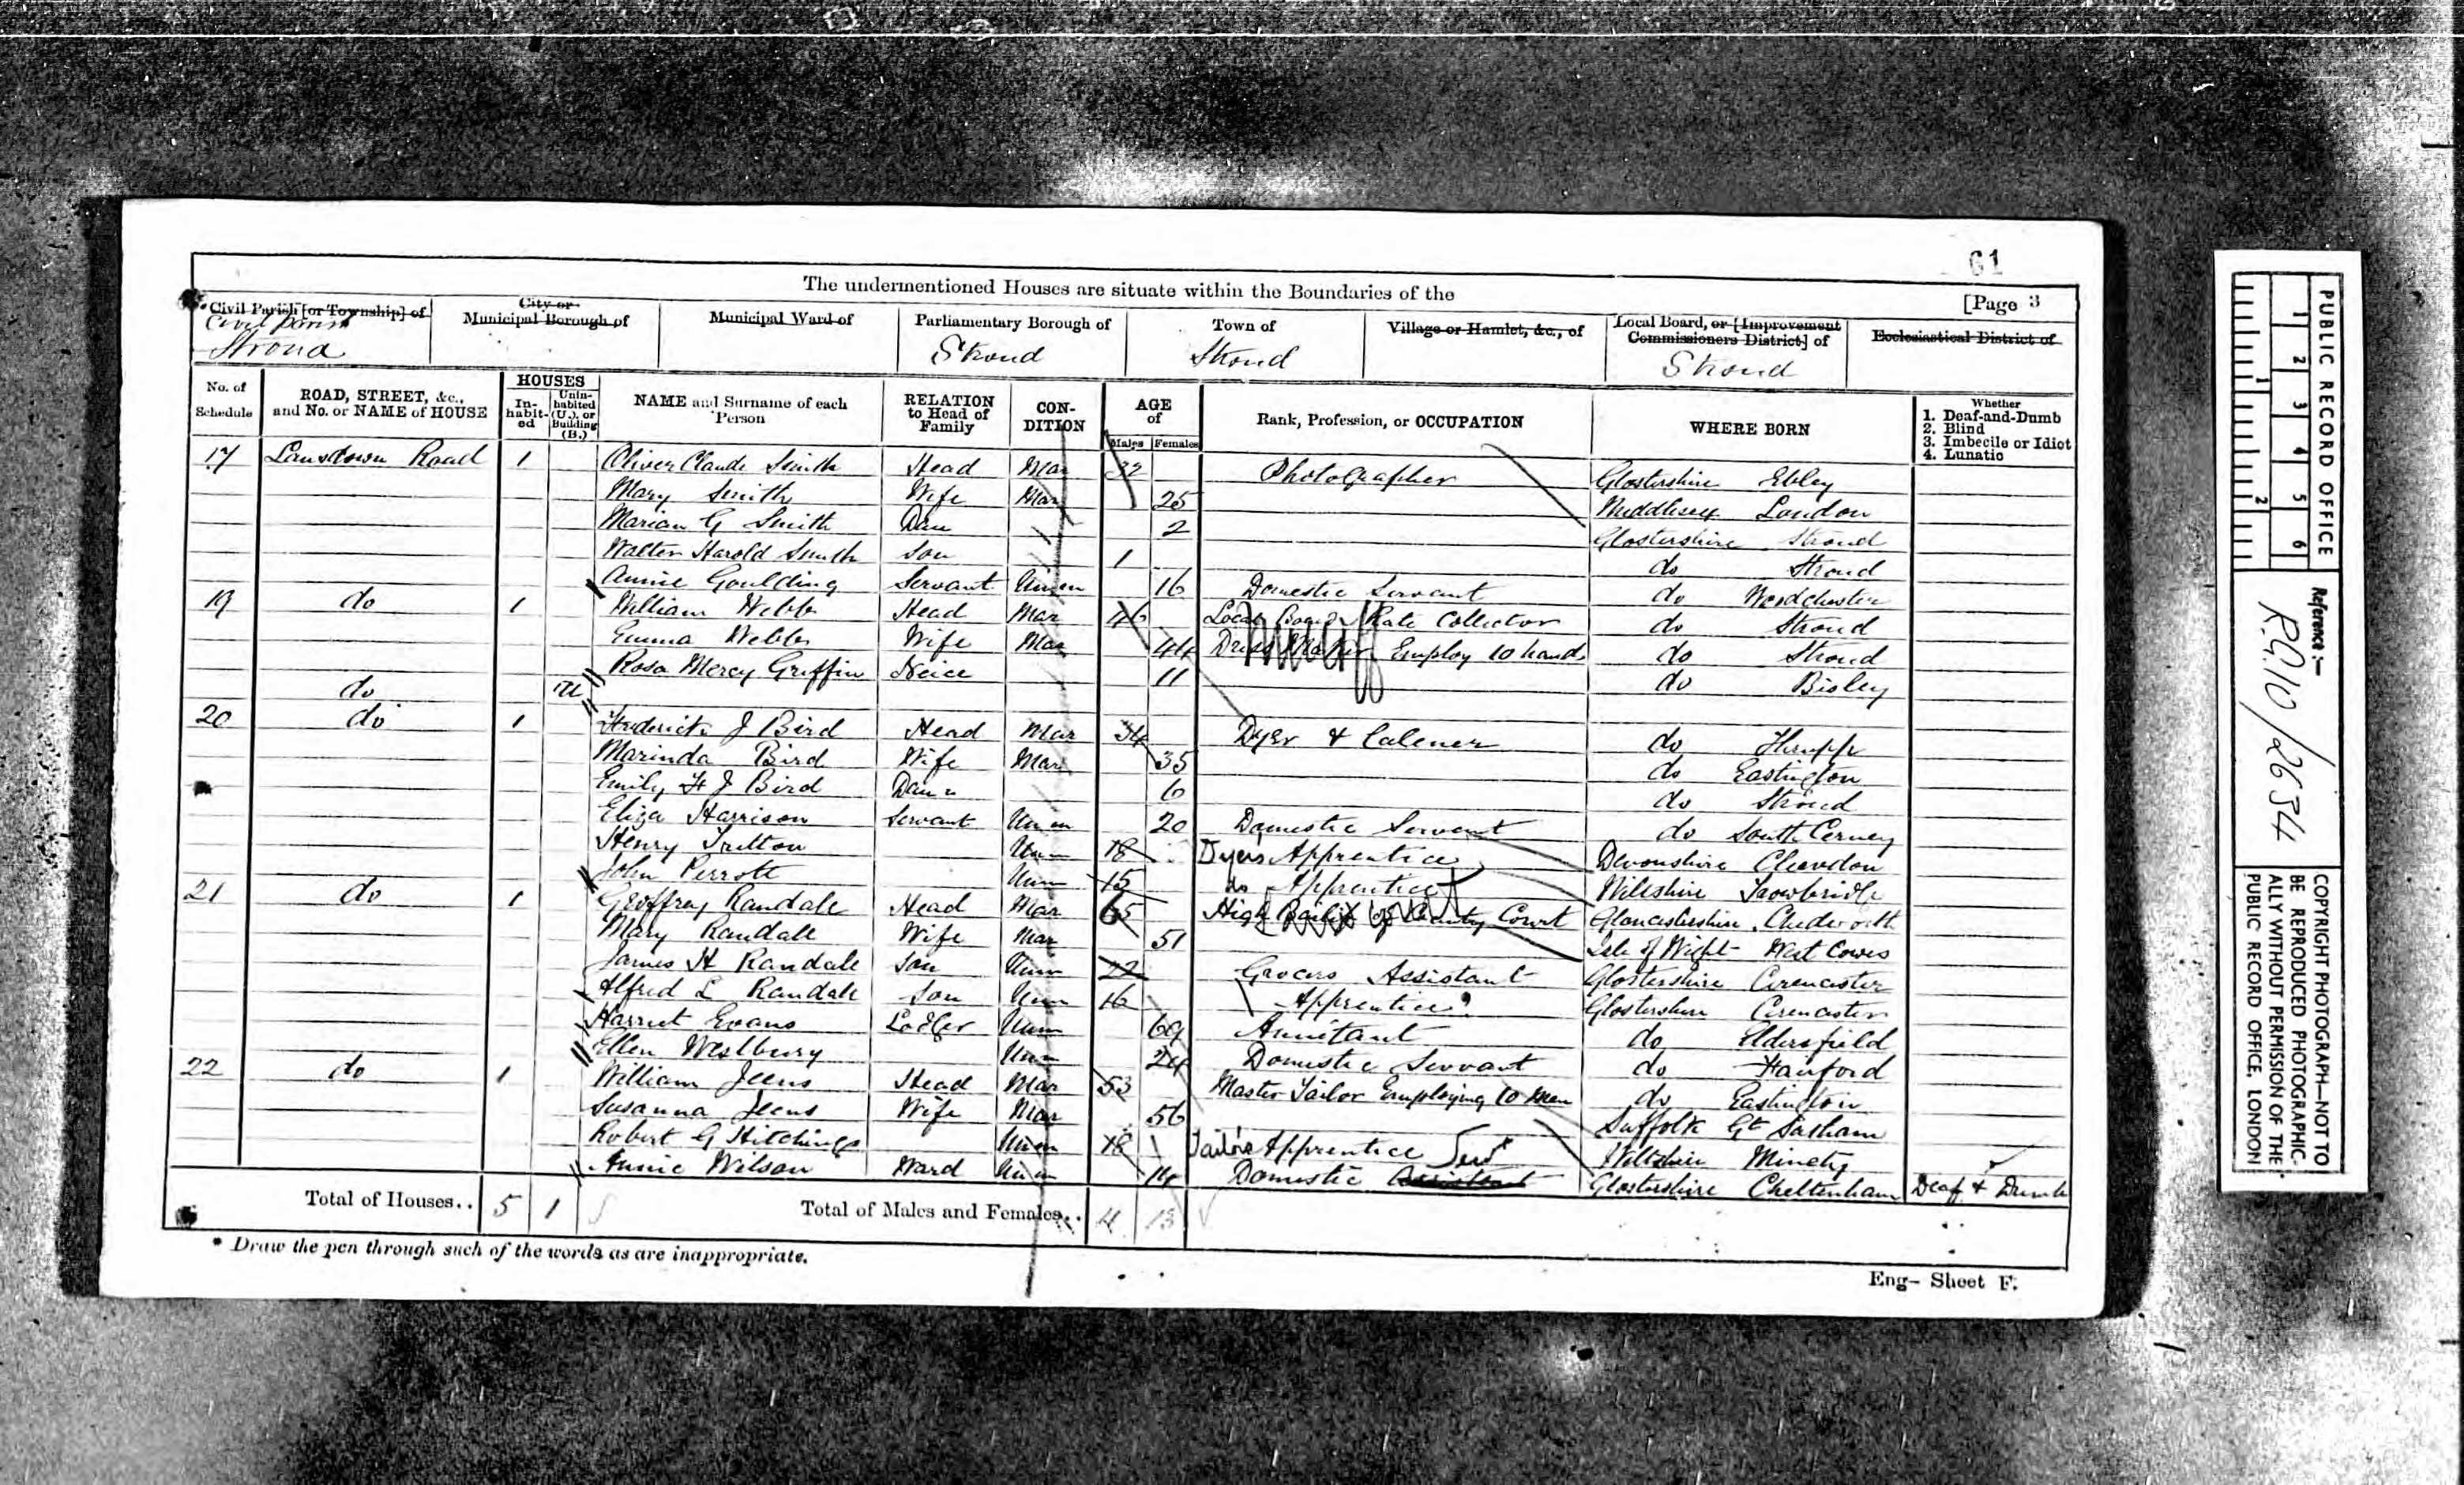 61
The undermentioned Houses are situate within the Boundaries of the
[Page 3
Civil Parish [or Township] of
City or Municipal Borough of
Municipal Ward of
Parliamentary Borough of
Town of
Village or Hamlet, &c., of
Local Board, or [Improvement Commissioners District] of
Ecclesiastical District of
Civil Parish
Stroud Stroud Stroud Stroud
No. of Schedule
ROAD, STREET, &c., and No. or NAME of HOUSE
HOUSES
In-habit-ed
Unin-habited (U.), or Building (B.)
NAME and Surname of each Person
RELATION to Head of Family
CON-DITION
AGE of
Males Females
Rank, Profession, or OCCUPATION
WHERE BORN
Whether
1. Deaf-and-Dumb
2. Blind
3. Imbecile or Idiot
4. Lunatic
17 Lansdown Road 1 Oliver Claude Smith Head Mar 32 Photographer Glostershire Ebley
Mary Smith Wife Mar 25 Middlesex London
Marian G Smith Dau 2 Glostershire Stroud
Walter Harold Smith Son 1 do Stroud
Annie Goulding Servant Unm 16 Domestic Servant do Woodchester
19 do 1 William Webb Head Mar 46 Local Board Rate Collector do Stroud
Emma Webb Wife Mar 44 Dress Maker Employ 10 hands do Stroud
Rosa Mercy Griffin Neice 11 do Bisley
do 1U
20 do 1 Frederick J Bird Head Mar 34 Dyer & Calener do Thrupp
Marinda Bird Wife Mar 35 do Eastington
Emily H J Bird Daur 6 do Stroud
Eliza Harrison Servant Unm 20 Domestic Servant do South Cerney
Henry Tritton Unm 18 Dyers Apprentice Devonshire Clevedon
John Perrott Unm 15 do Apprentice Wiltshire Trowbridge
21 do 1 Geoffrey Randale Head Mar 65 High Bailiff of County Court Gloucestershire Chedworth
Mary Randall Wife Mar 51 Isle of Wight West Cowes
James H Randale Son Unm 22 Grocers Assistant Glostershire Cirencester
Alfred L Randale Son Unm 16 Apprentice Glostershire Cirencester
Harriet Evans Lodger Unm 69 Annuitant do Eldersfield
Ellen Westbury Unm 24 Domestic Servant do
22 do 1 William Jeens Head Mar 53 Master Tailor Employing 10 Men do Eastington
Susanna Jeens Wife Mar 56 Suffolk Gt Saxham
Robert G Hitchings Unm 18 Tailors Apprentice Wiltshire Minety
Annie Wilson Ward Unm 14 Domestic Assistant Servt Glostershire Cheltenham Deaf & Dumb
Total of Houses.. 5 1 Total of Males and Females.. 11 13
* Draw the pen through such of the words as are inappropriate.
Eng- Sheet F.
PUBLIC RECORD OFFICE
1 2 3 4 5 6
1 2
Reference:-
R.G.10/2634
COPYRIGHT PHOTOGRAPH—NOT TO BE REPRODUCED PHOTOGRAPHIC-ALLY WITHOUT PERMISSION OF THE PUBLIC RECORD OFFICE, LONDON